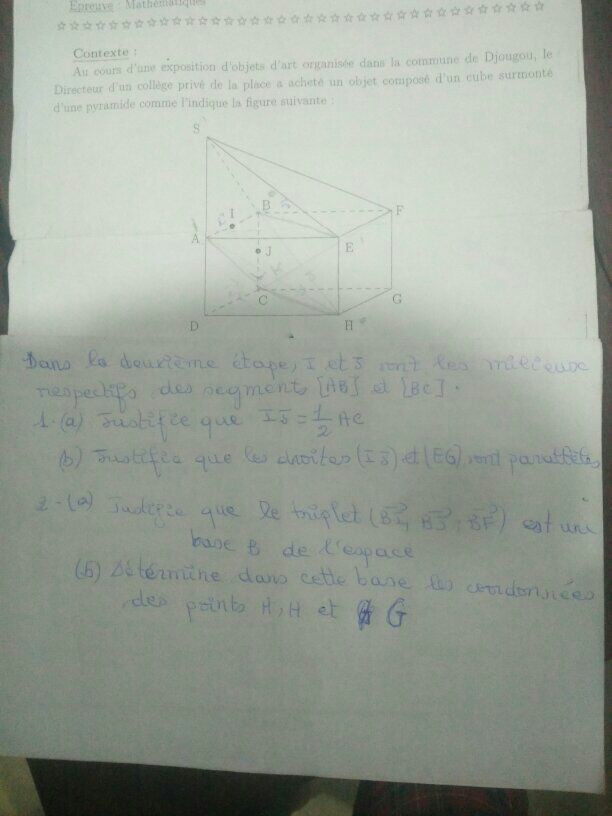 Epreuve : Mathématiques
☆☆☆☆☆☆☆☆☆☆☆☆☆☆☆☆☆☆☆☆☆☆☆☆☆☆☆☆☆☆☆☆☆☆☆☆☆☆☆
Contexte :
Au cours d'une exposition d'objets d'art organisée dans la commune de Djougou, le
Directeur d'un collège privé de la place a acheté un objet composé d'un cube surmonté
d'une pyramide comme l'indique la figure suivante :
S
B
I
F
A
E
J
C
G
D
H
Dans la deuxième étape, I et J sont les milieux
respectifs des segments [AB] et [BC].
1-(a) Justifie que IJ = 1/2 AC
(b) Justifie que les droites (IJ) et (EG) sont parallèles
2-(a) Justifie que le triplet (BI→, BJ→, BF→) est une
base B de l'espace
(b) Détermine dans cette base les coordonnées
des points A, H et G